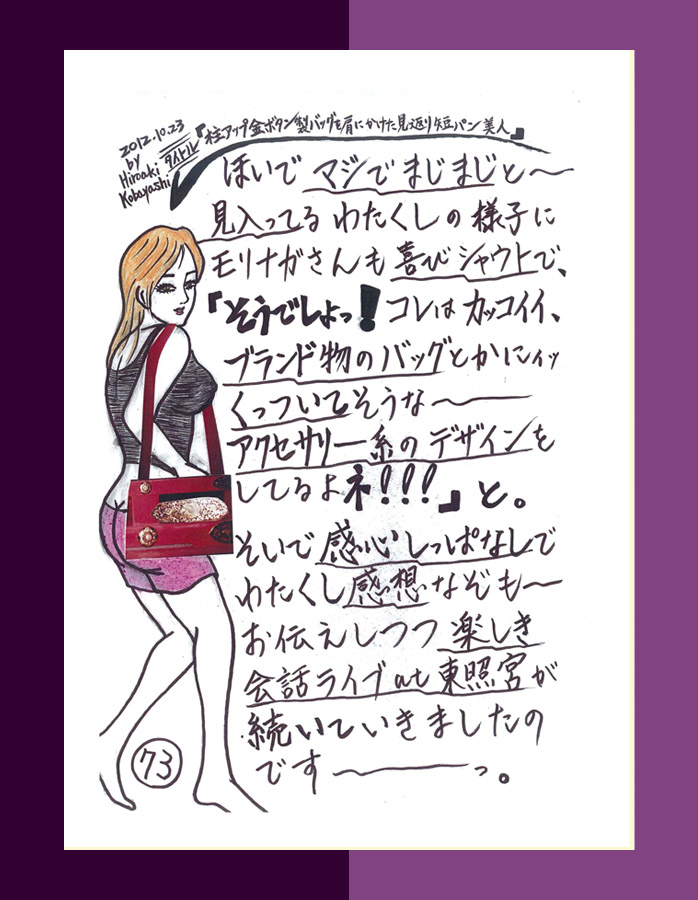 2012.10.23
by
Hiroaki
Kobayashi
タイトル
『柱アップ金ボタン製バッグを肩にかけた見返り短パン美人』
ほいで マジで まじまじと〜
見入ってる わたくしの 様子に
モリナガさんも 喜びシャウトで、
「そうでしょっ! コレは カッコイイ、
ブランド物の バッグとかにィッ
くっついてそうな〜
アクセサリー系の デザインを
してるよネ!!!」と。
そいで 感心しっぱなしで
わたくし 感想なぞも〜
お伝えしつつ 楽しき
会話ライブ at 東照宮が
続いていきましたの
です〜っ。
73